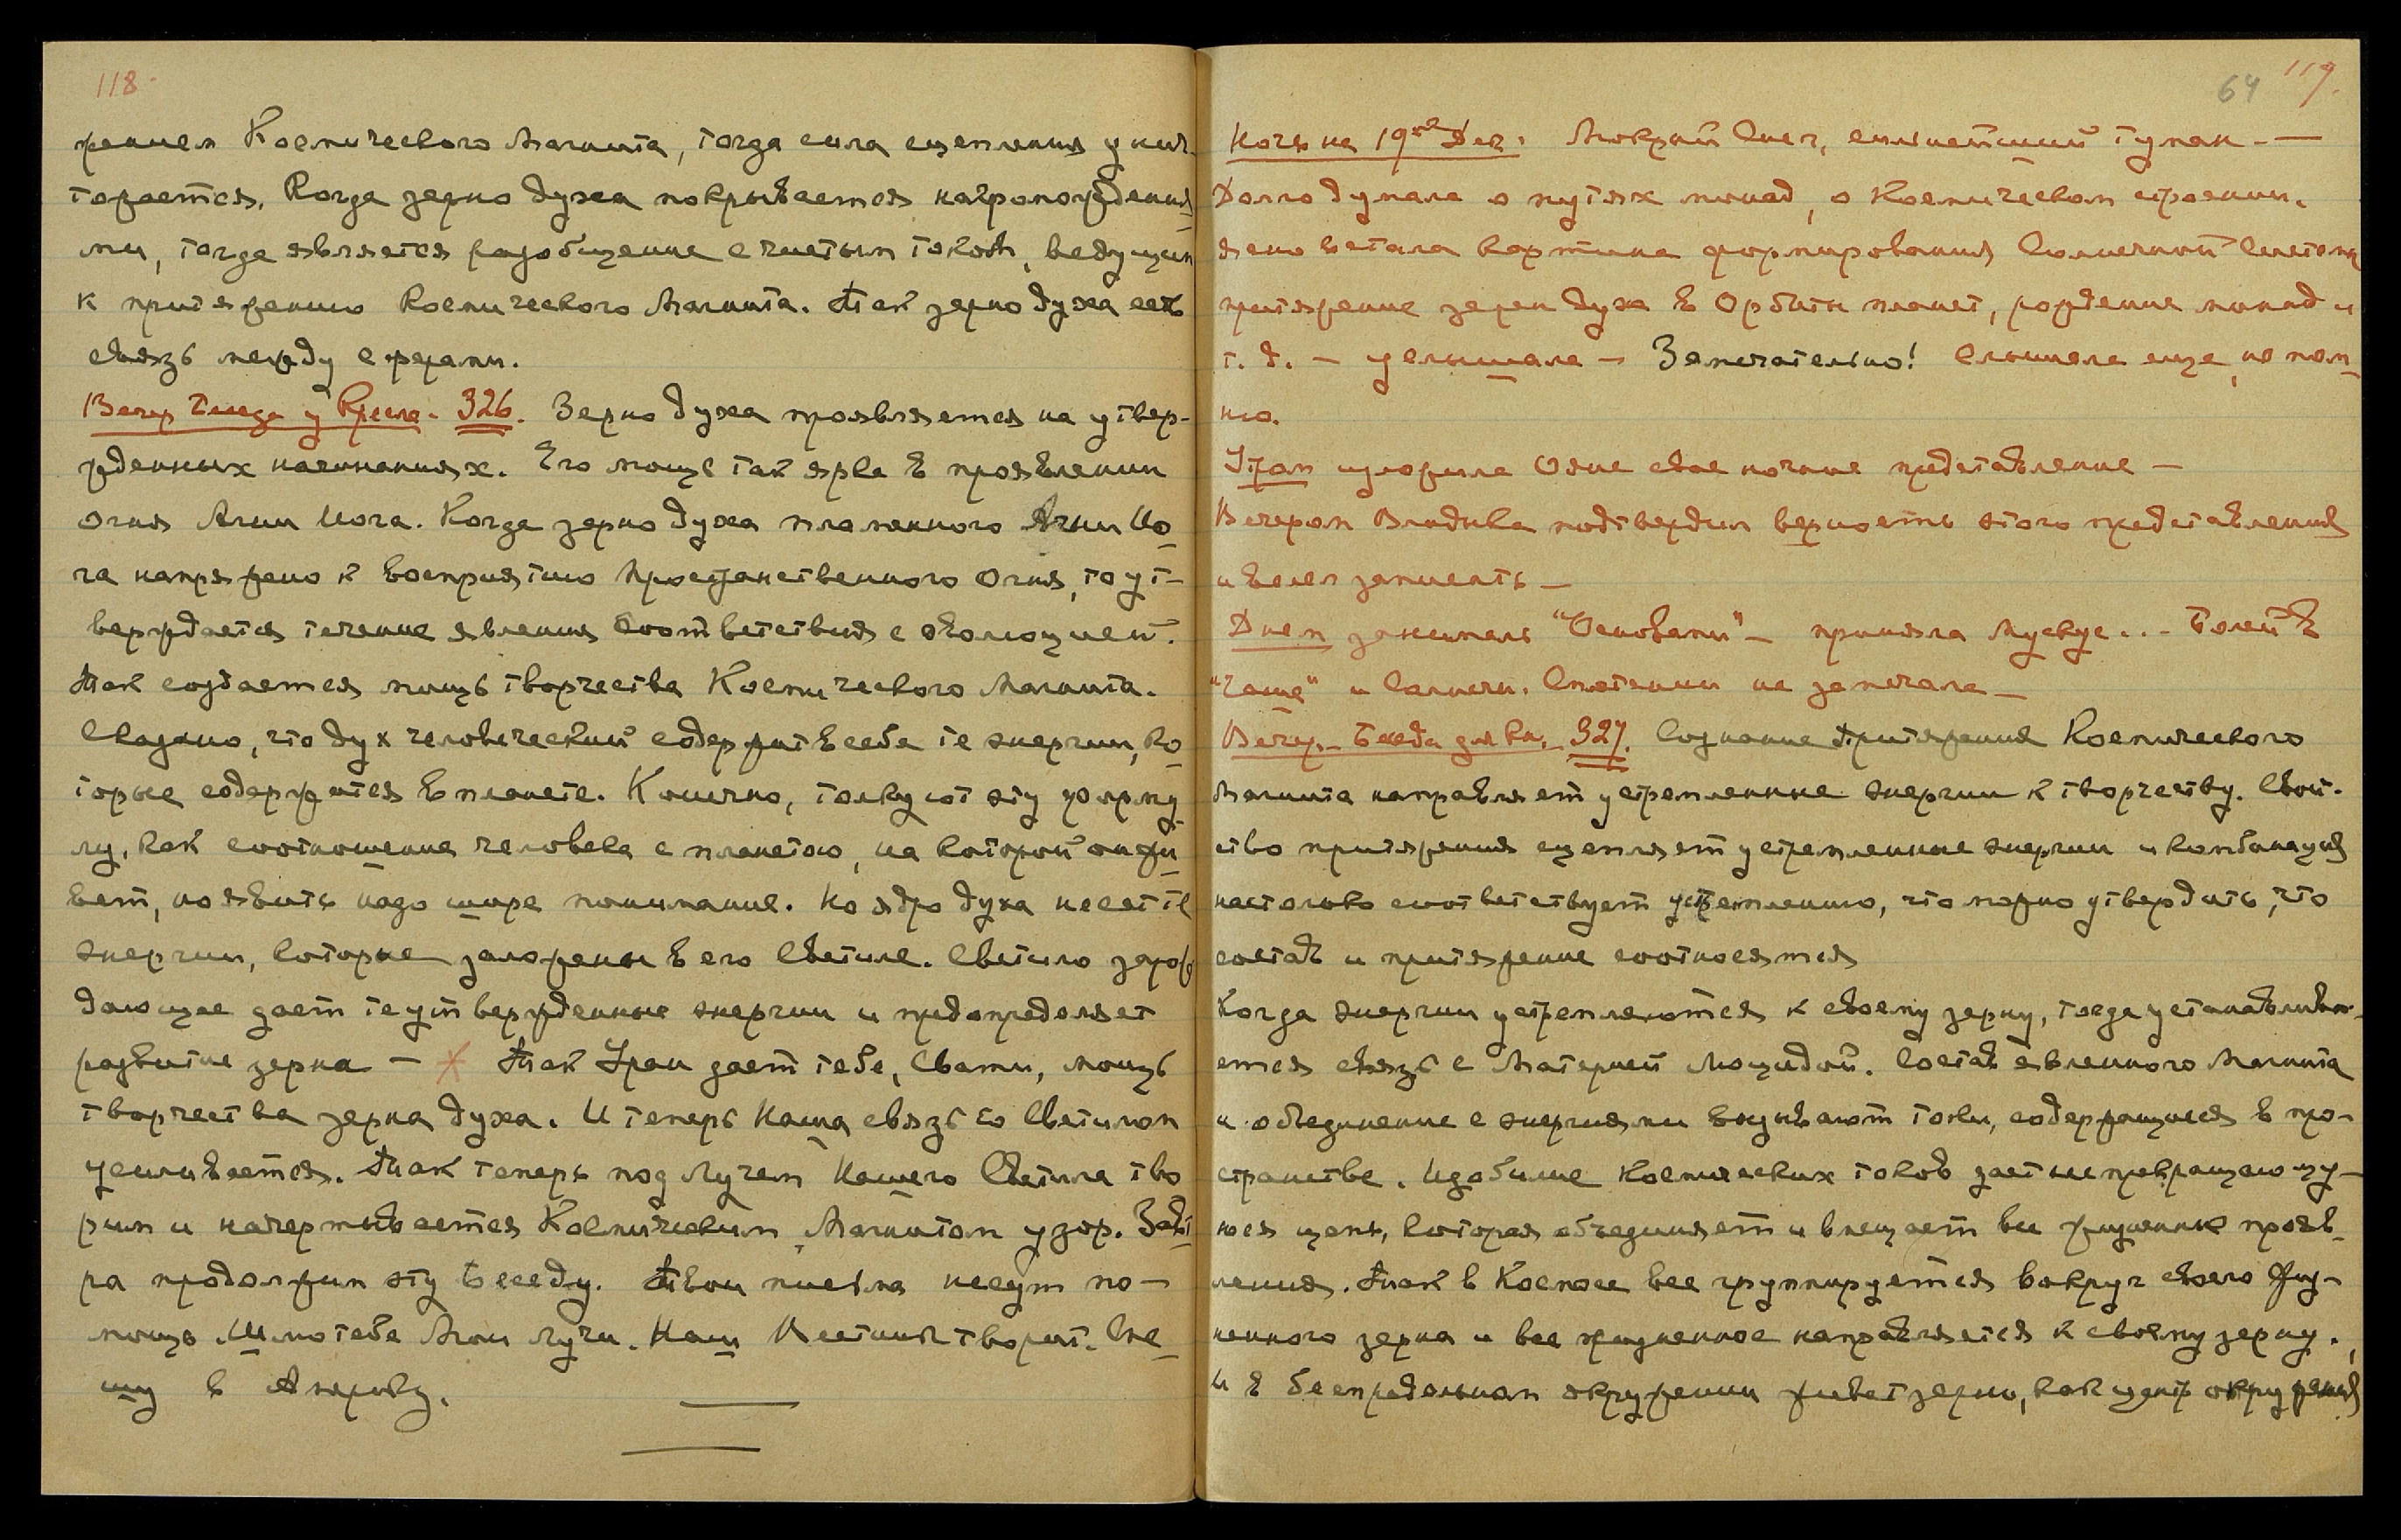 118.
жением Космического Магнита, тогда сила сцепления унич-
тожается. Когда зерно духа покрывается нагромождения-
ми, тогда является разобщение с чистым током, ведущим
к притяжению Космического Магнита. Так зерно духа есть
связь между сферами.
Вечер Беседа у Кресла. 326. Зерно духа проявляется на утвер-
жденных начинаниях. Его мощь так ярка в проявлении
огня Агни Йога. Когда зерно духа пламенного Агни Йо-
га напряжено к восприятию Пространственного Огня, то ут-
верждается течение явления соответствия с эволюцией.
Так создается мощь творчества Космического Магнита.
Сказано, что дух человеческий содержит в себе те энергии, ко-
торые содержатся в планете. Конечно, толкуют эту форму-
лу, как соотношение человека с планетою, на которой он жи-
вет, но явить надо шире понимание. Но ядро духа несет те
энергии, которые заложены в его Светиле. Светило зарож-
дающее дает те утвержденные энергии и предопределяет
развитие зерна — * Так Уран дает тебе, Свати, мощь
творчества зерна духа. И теперь Наша связь со Светилом
усиливается. Так теперь под Лучем Нашего Светила тво
рим и начертывается Космическим Магнитом узор. Завт
ра продолжим эту беседу. Твои письма несут по-
мощь Шлю тебе Мои лучи. Наш Вестник творит. Спе-
шу в Америку.
64 119.
Ночь на 19ое Дек: Мокрый Снег, сильнейший туман - —
Долго думала о путях монад, о Космическом строении.
ясно встала картина формирования Солнечной Системы
притяжение зерен духа в Орбиты планет, рождение монад и
т. д. — услышала — Замечательно! Слышала еще, не пом-
ню.
Утром изложила Ояне свое ночные представление —
Вечером Владыка подтвердил верность этого представления
и велел записать —
Днем занимались "Основами" — приняла Мускус... Болей в
"Чаше" и Солнечн. Сплетении не замечала —
Вечер. — Беседа у Кр. — 327. Сознание Притяжения Космического
Магнита направляет устремленные энергии к творчеству. Свой-
ство притяжения сцепляет устремленные энергии и комбинация
настолько соответствует устремлению, что можно утвердить, что
состав и притяжение соотносятся
Когда энергии устремляются к своему зерну, тогда устанавлива-
ется связь с Материей Люцидой. Состав явленного Магнита
и объединение с энергиями вызывают токи, содержащиеся в про-
странстве. Изобилие космических токов дает непрекращающу-
юся цепь, которая объединяет и вмещает все жизненные прояв-
ления. Так в Космосе все группируется вокруг своего жиз-
ненного зерна и все жизненное направляется к своему зерну.
И в беспредельном окружении живет зерно, как центр окружения